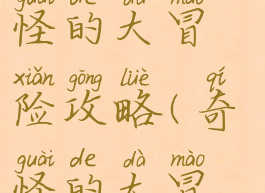 guài de dà mào
怪的大冒
xiǎn gōng lüè qí
险攻略(奇
guài de dà mào
怪的大冒